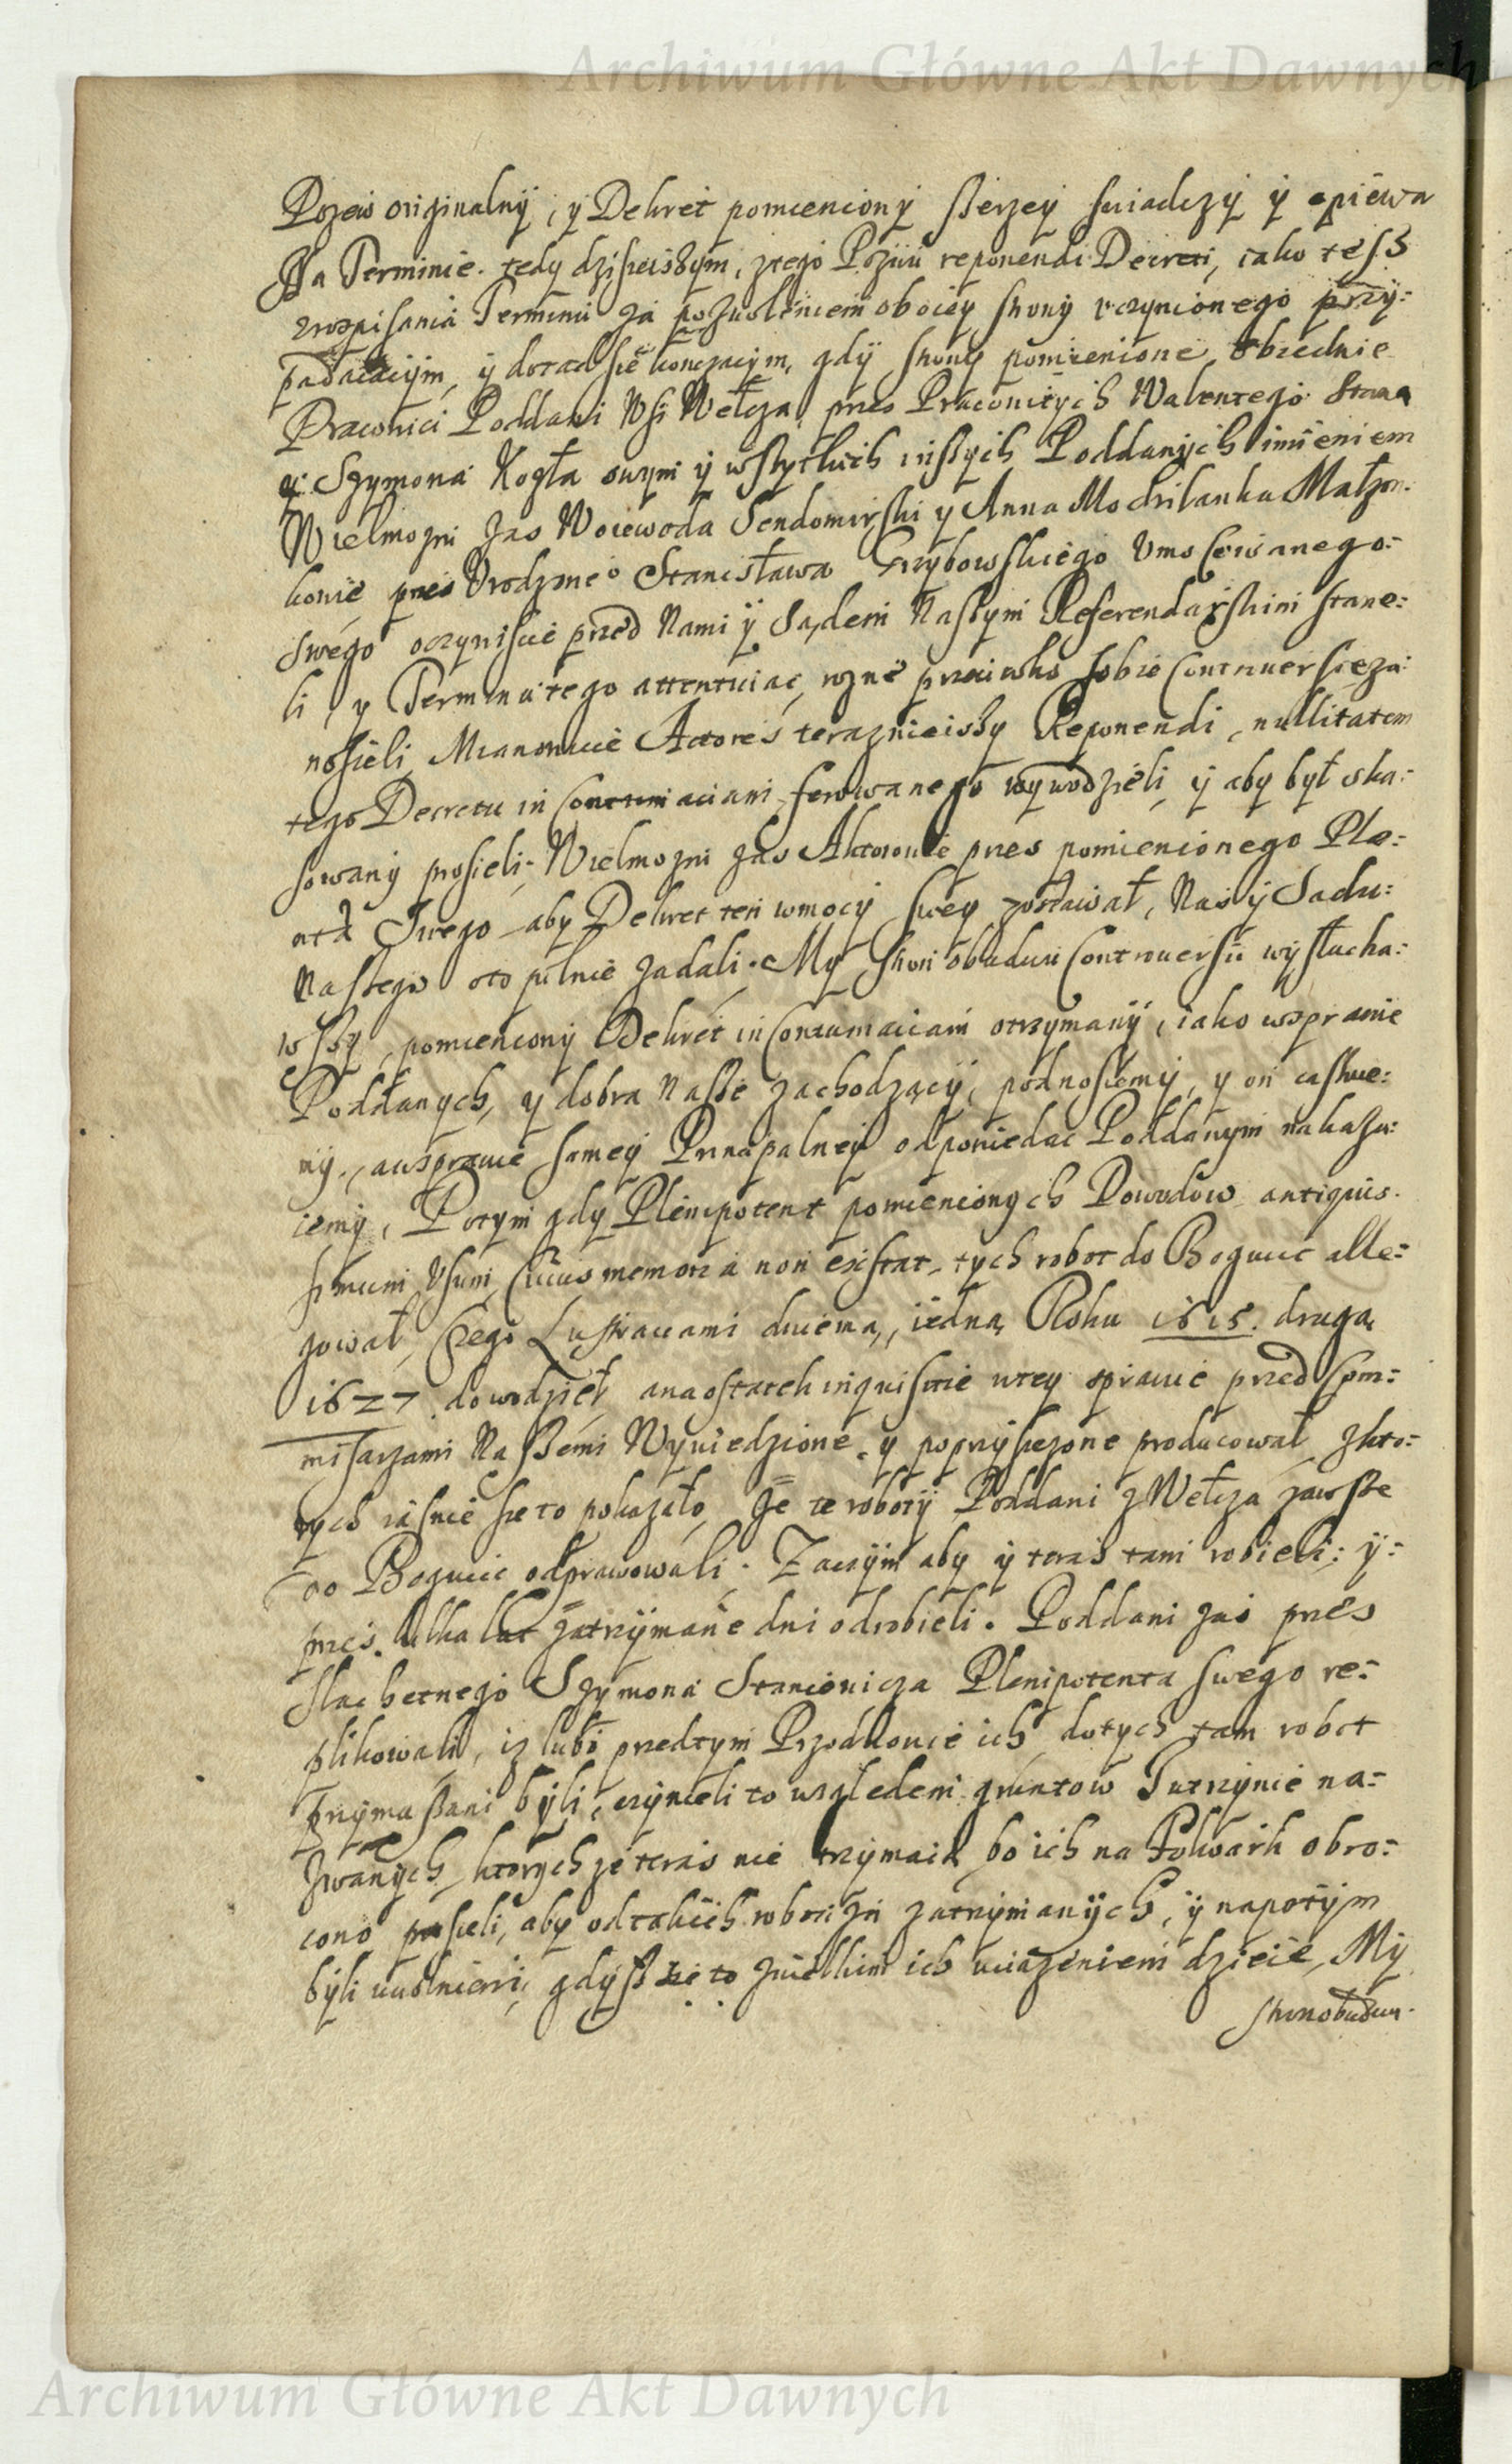 Archiwum Główne Akt Dawnych
Pozew originalny, y Dekret pomieniony szerzey swiadczy y opiewa
Na Terminie tedy dzisieiszym, z tego Pozwu reponendi Decreti, iako tesz
z rospisania Terminu za pozwoleniem oboiey strony uczynionego przy:
padaiącym, y dotąd się konczącym, gdy strony pomienione, obiednie
Pracowici Poddani Wsi Wełcza, przes Pracowitych Walentego
y Szymona Kozła swym y wszytkich inszych Poddanych imieniem
Wielmozni zas Woiewoda Sendomirski y Anna Mochrilanka Małzon:
kowie przes Urodzone° Stanisława Grzybowskiego Umocowanego:
swego oczywiscie przed Nami y Sądem Naszym Referendarskim stane:
li, y Terminu tego attentuiąc, rozne przeciwko sobie Controuersie za:
nosieli, Mianowicie Actores teraznieiszy Reponendi, nullitatem
tego Decretu in Contumaciam ferowanego wywodzieli, y aby był ska:
sowany prosieli, Wielmozni zas Aktorowie przes pomienionego Ple:
ata Swego aby Dekret ten w mocy swey zostawał, Nas y Sądu:
Naszego oto pilnie ządali. My stron obudwu Controuersii wysłucha:
wszy, pomieniony Dekret in Contumaciam otrzymany, iako w sprawie
Poddanych, y dobra Nasze zachodzący, podnosiemy, y on cassuie:
my, a w sprawie samey Principalney odpowiedac Poddanym nakazu:
iemy, Potym gdy Plenipotent pomienionych Powodow antiquis:
simum Usum, Cuius memoria non exstat, tych robot do Boguwic alle:
gował, Czego Lustraciami dwiema, iedną Roku 1615. drugą
1627 dowodzieł, a na ostatek inquisitie w tey sprawie przed Com:
misarzami Naszemi Wywiedzione, y poprzysięzone producował, z kto:
rych iasnie sie to pokazało, Ze te roboty Poddani z Wełcza zawsze
do Boguwic odprawowali. Zaczym aby y teras tam robieli: y:
przes kilka lat zatrzymane dni odrobieli. Poddani zas przes
Slachetnego Szymona Staniewicza Plenipotenta swego re:
plikowali, iz lubo przedtym Przodkowie ich do tych tam robot
przymuszani byli, czynieli to względem gruntow Putrzynie na:
zwanych, ktorych ze teras nie trzymaią, bo ich na Folwark obro:
cono prosieli, aby od takich robocizn zatrzymanych, y napotym
byli uwolnieni, gdysz sie to z wielkim ich uciązeniem dzieie, My
stron obudwu.
Archiwum Główne Akt Dawnych